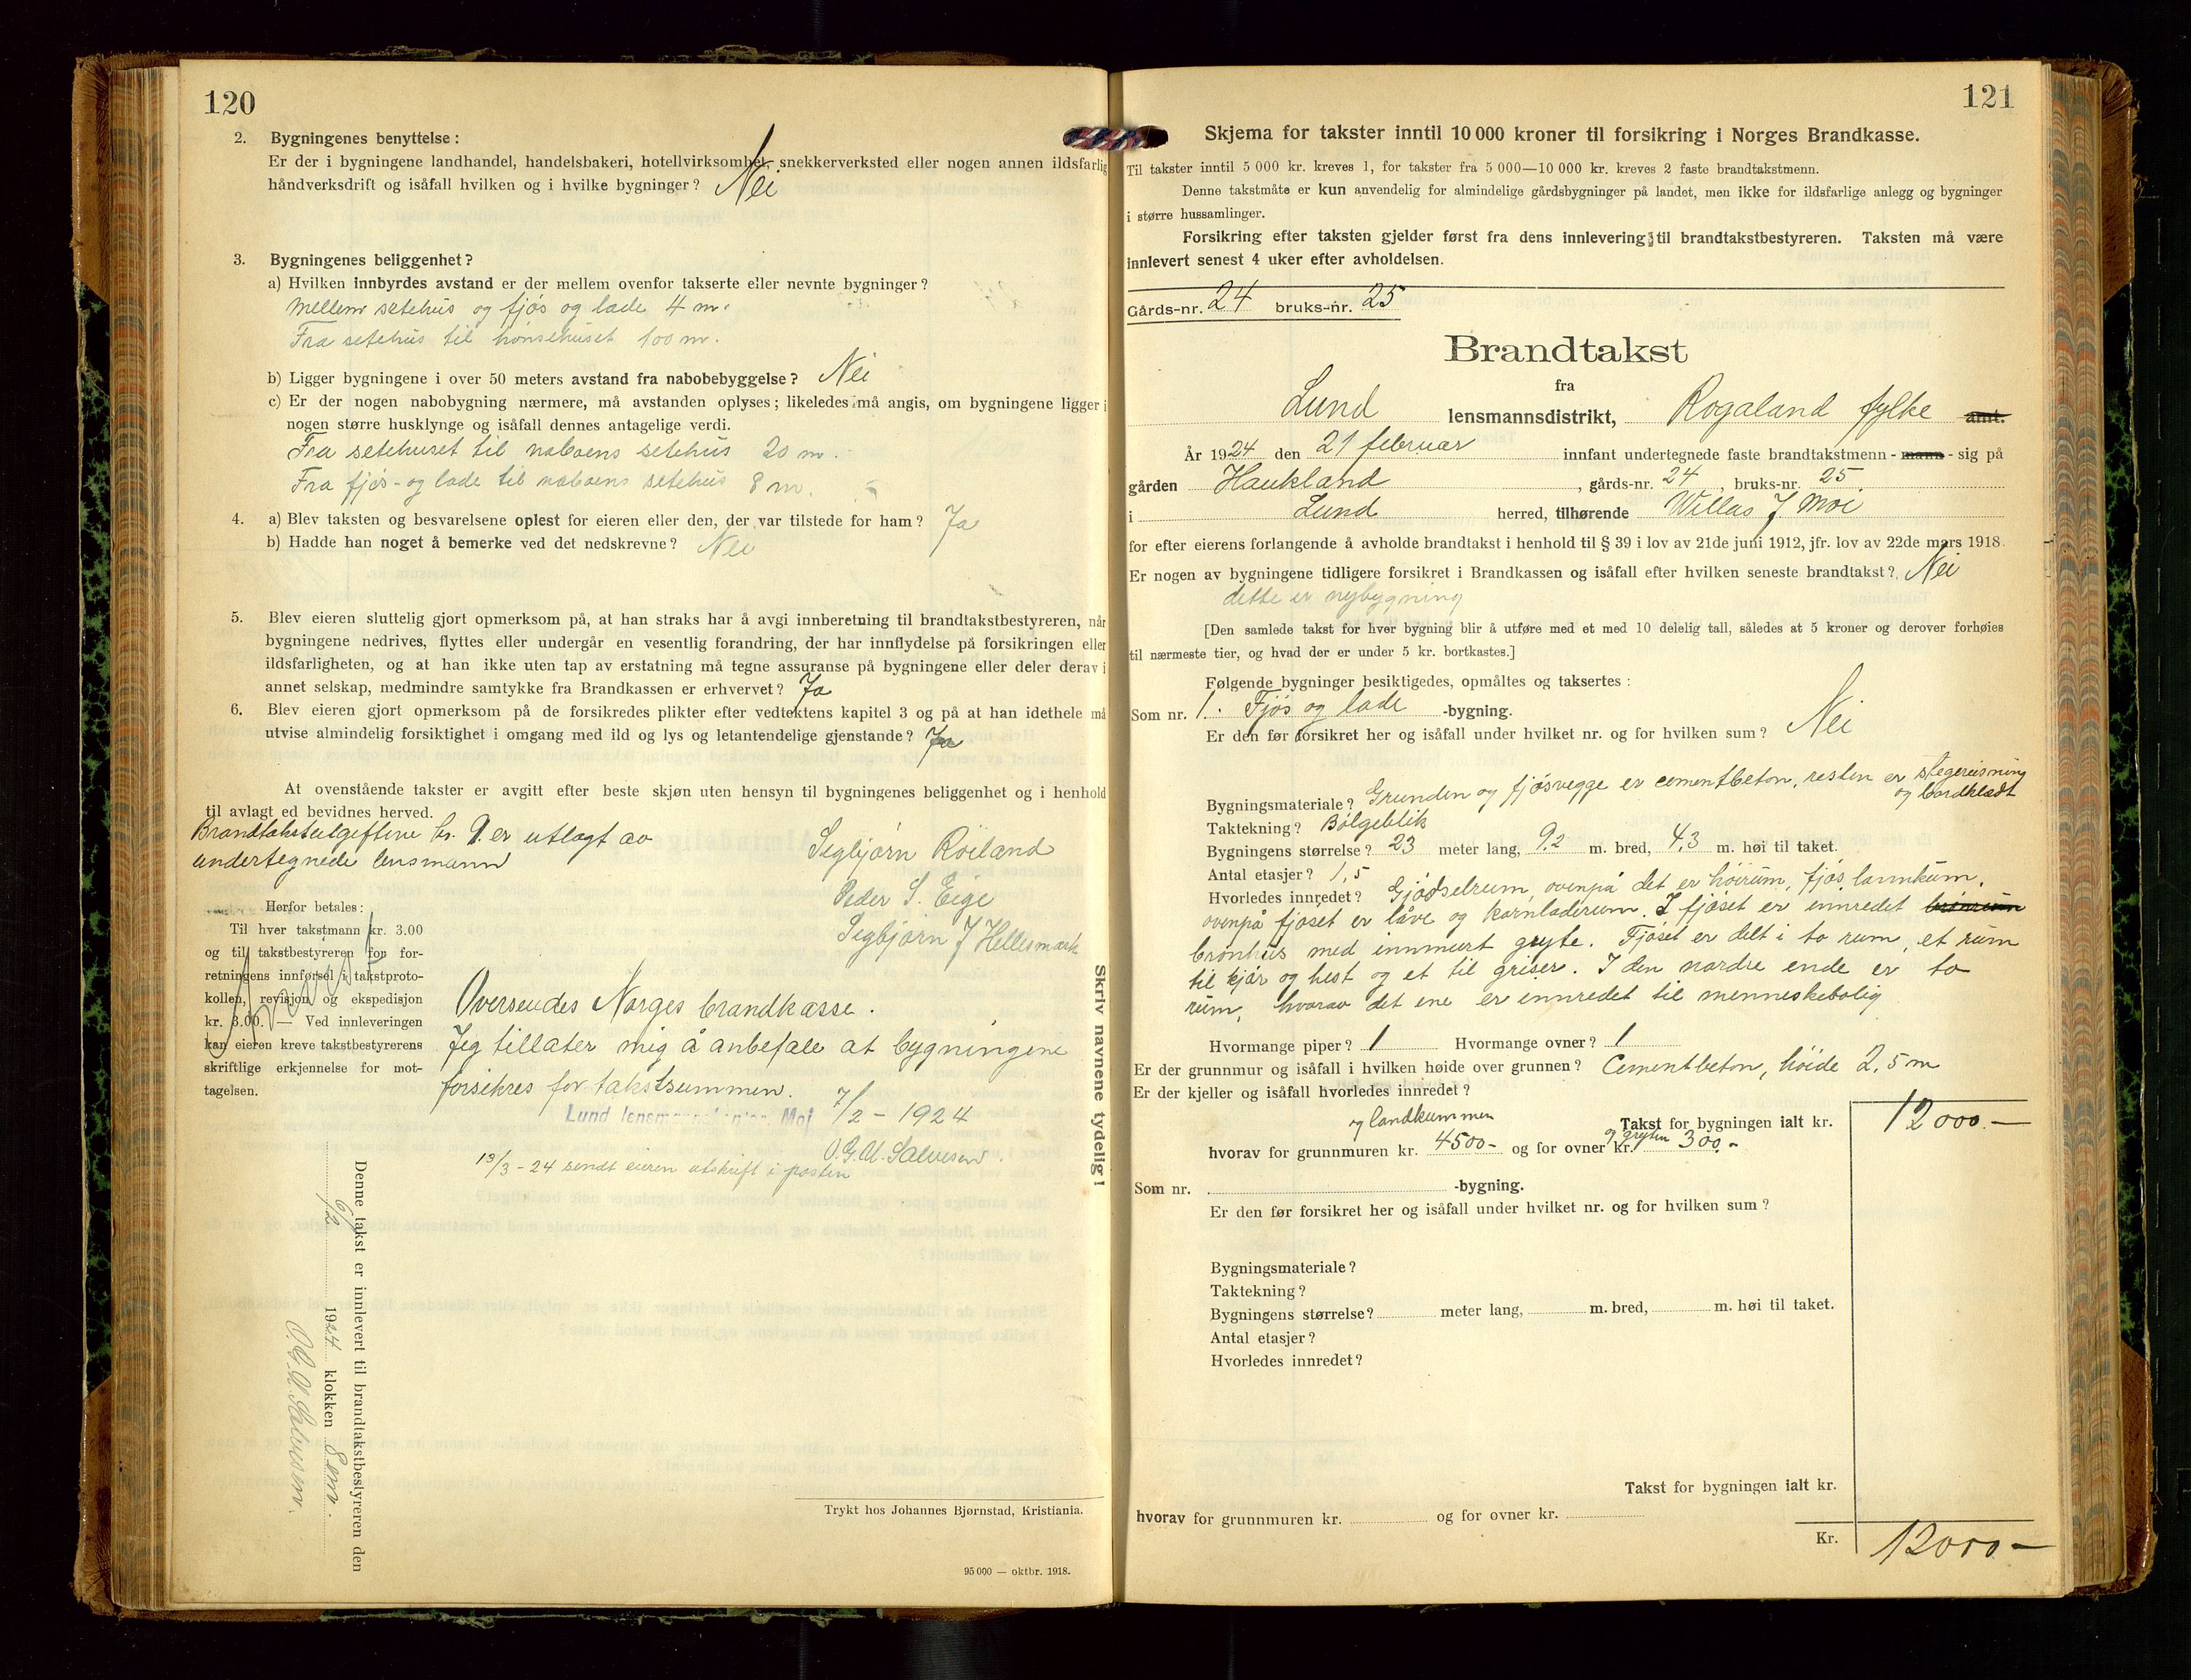 120
2. Bygningenes benyttelse:
Er der i bygningene landhandel, handelsbakeri, hotellvirksomhet, snekkerverksted eller nogen annen ildsfarlig
håndverksdrift og isåfall hvilken og i hvilke bygninger? Nei
3. Bygningenes beliggenhet?
a) Hvilken innbyrdes avstand er der mellem ovenfor takserte eller nevnte bygninger?
Mellem setehus og fjøs og lade 4 m.
Fra setehus til hønsehuset 100 m.
b) Ligger bygningene i over 50 meters avstand fra nabobebyggelse? Nei
c) Er der nogen nabobygning nærmere, må avstanden oplyses; likeledes må angis, om bygningene ligger i
nogen større husklynge og isåfall dennes antagelige verdi.
Fra setehuset til naboens setehus 20 m.
Fra fjøs- og lade til naboens setehus 8 m.
4. a) Blev taksten og besvarelsene oplest for eieren eller den, der var tilstede for ham? Ja
b) Hadde han noget å bemerke ved det nedskrevne? Nei
5. Blev eieren sluttelig gjort opmerksom på, at han straks har å avgi innberetning til brandtakstbestyreren, når
bygningene nedrives, flyttes eller undergår en vesentlig forandring, der har innflydelse på forsikringen eller
ildsfarligheten, og at han ikke uten tap av erstatning må tegne assuranse på bygningene eller deler derav i
annet selskap, medmindre samtykke fra Brandkassen er erhvervet? Ja
6. Blev eieren gjort opmerksom på de forsikredes plikter efter vedtektens kapitel 3 og på at han idethele må
utvise almindelig forsiktighet i omgang med ild og lys og letantendelige gjenstande? Ja
At ovenstående takster er avgitt efter beste skjøn uten hensyn til bygningenes beliggenhet og i henhold
til avlagt ed bevidnes herved.
Brandtakstutgiftene kr. 9. er utlagt av
undertegnede lensmann
Segbjørn Røiland
Peder S. Eige
Segbjørn J Hellesmark
Herfor betales:
Til hver takstmann kr. 3.00
og til takstbestyreren for for-
retningens innførsel i takstproto-
kollen, revisjon og ekspedisjon
kr. 3.00. — Ved innleveringen
kan eieren kreve takstbestyrerens
skriftlige erkjennelse for mot-
tagelsen.
Oversendes Norges brandkasse.
Jeg tillater mig å anbefale at bygningene
forsikres for takstsummen.
Lund lensmannskontor Moi 7/2 - 1924
O.G.Al. Salvesen.
13/3 - 24 sendt eieren utskrift i posten
Skriv navnene tydelig!
Denne takst er innlevert til brandtakstbestyreren den
6/2 1924 klokken 8 em.
O.G.Al. Salvesen.
Trykt hos Johannes Bjørnstad, Kristiania.
95 000 — oktbr. 1918.
121
Skjema for takster inntil 10 000 kroner til forsikring i Norges Brandkasse.
Til takster inntil 5 000 kr. kreves 1, for takster fra 5 000—10 000 kr. kreves 2 faste brandtakstmenn.
Denne takstmåte er kun anvendelig for almindelige gårdsbygninger på landet, men ikke for ildsfarlige anlegg og bygninger
i større hussamlinger.
Forsikring efter taksten gjelder først fra dens innlevering til brandtakstbestyreren. Taksten må være
innlevert senest 4 uker efter avholdelsen.
Gårds-nr. 24 bruks-nr. 25
Brandtakst
fra
Lund lensmannsdistrikt, Rogaland fylke amt.
År 1924 den 21 februar innfant undertegnede faste brandtakstmenn - mann - sig på
gården Haukland, gårds-nr. 24, bruks-nr. 25
i Lund herred, tilhørende Willas J Moi
for efter eierens forlangende å avholde brandtakst i henhold til § 39 i lov av 21de juni 1912, jfr. lov av 22de mars 1918.
Er nogen av bygningene tidligere forsikret i Brandkassen og isåfall efter hvilken seneste brandtakst? Nei
dette er nybygning
[Den samlede takst for hver bygning blir å utføre med et med 10 delelig tall, således at 5 kroner og derover forhøies
til nærmeste tier, og hvad der er under 5 kr. bortkastes.]
Følgende bygninger besiktigedes, opmåltes og taksertes:
Som nr. 1. Fjøs og lade -bygning.
Er den før forsikret her og isåfall under hvilket nr. og for hvilken sum? Nei
Bygningsmateriale? Grunden og fjøsvegge er cementbeton, resten er stegereisning
og bordklædt
Taktekning? Bølgeblik
Bygningens størrelse? 23 meter lang, 9.2 m. bred, 4.3 m. høi til taket.
Antal etasjer? 1,5
Hvorledes innredet? Gjødselrum, ovenpå det er høirum, fjøs, lannkum.
ovenpå fjøset er låve og kornladerum. I fjøset er innredet
brønhus med innmurt gryte. Fjøset er delt i to rum, et rum
til kjør og hest og et til griser. I den nordre ende er to
rum, hvorav det ene er innredet til menneskebolig
Hvormange piper? 1 Hvormange ovner? 1
Er der grunnmur og isåfall i hvilken høide over grunnen? Cementbeton, høide 2,5 m
Er der kjeller og isåfall hvorledes innredet?
Takst for bygningen ialt kr. 12000.—
og landkummen og gryten
hvorav for grunnmuren kr. 4500- og for ovner kr. 300.-
Som nr. -bygning.
Er den før forsikret her og isåfall under hvilket nr. og for hvilken sum?
Bygningsmateriale?
Taktekning?
Bygningens størrelse? meter lang, m. bred, m. høi til taket.
Antal etasjer?
Hvorledes innredet?
Takst for bygningen ialt kr.
hvorav for grunnmuren kr. og for ovner kr.
Kr. 12000.—